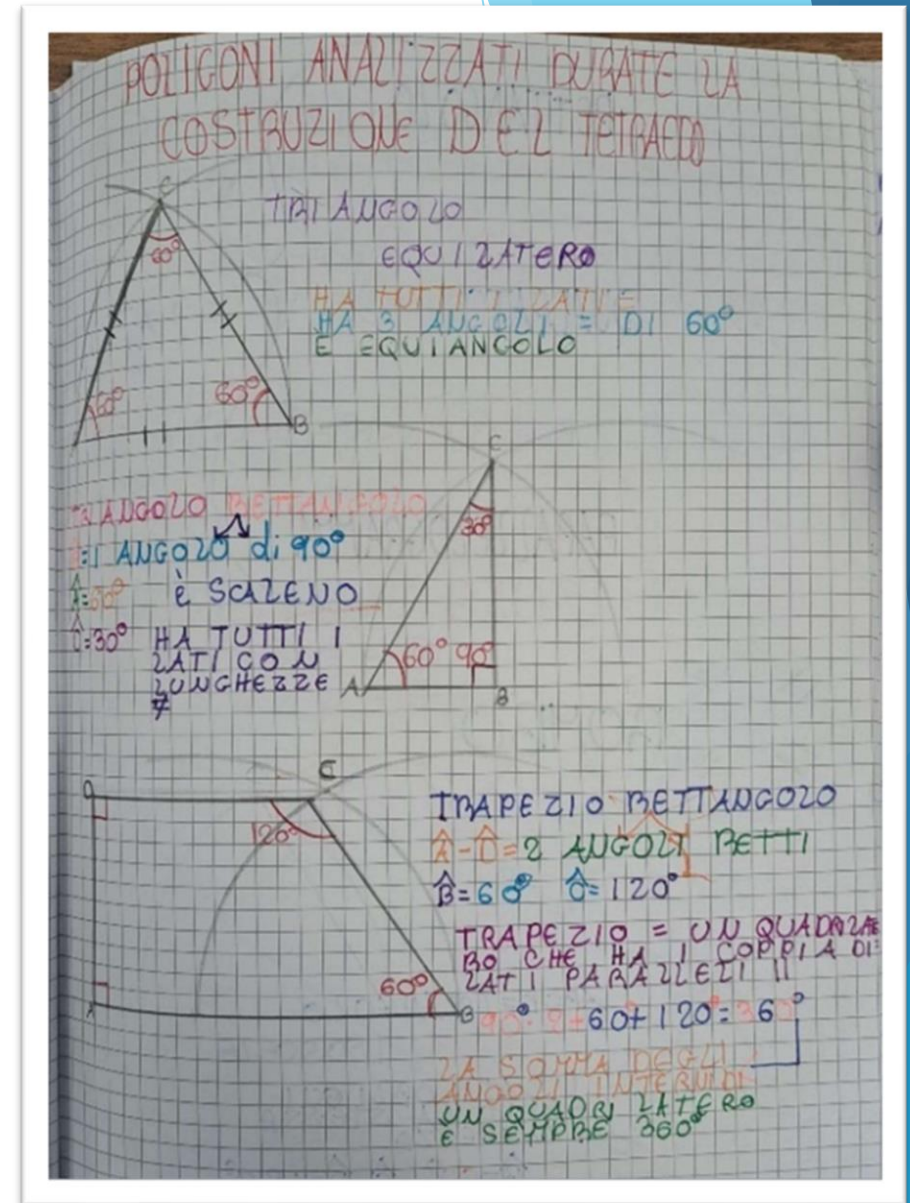 POLIGONI ANALIZZATI DURATE LA
COSTRUZIONE DEL TETRAEDO
C
60°
60°
60°
B
TRIANGOLO
EQUILATERO
HA TUTTI I LATI =
HA 3 ANGOLI = DI 60°
E EQUIANGOLO
ANGOLO RETTANGOLO
1 ANGOLO di 90°
Â=60° è SCALENO
Ĉ=30° HA TUTTI I
LATI CON
LUNGHEZZE
≠
C
30°
60° 90°
A
B
D
C
120°
60°
A
B
TRAPEZIO RETTANGOLO
Â-D̂=2 ANGOLI RETTI
B̂=60° Ĉ=120°
TRAPEZIO = UN QUADRILATE
RO CHE HA 1 COPPIA DI
LATI PARALLELI II
90°·2+60+120°=360°
LA SOMMA DEGLI
ANGOLI INTERNI DI
UN QUADRILATERO
E SEMPRE 360°